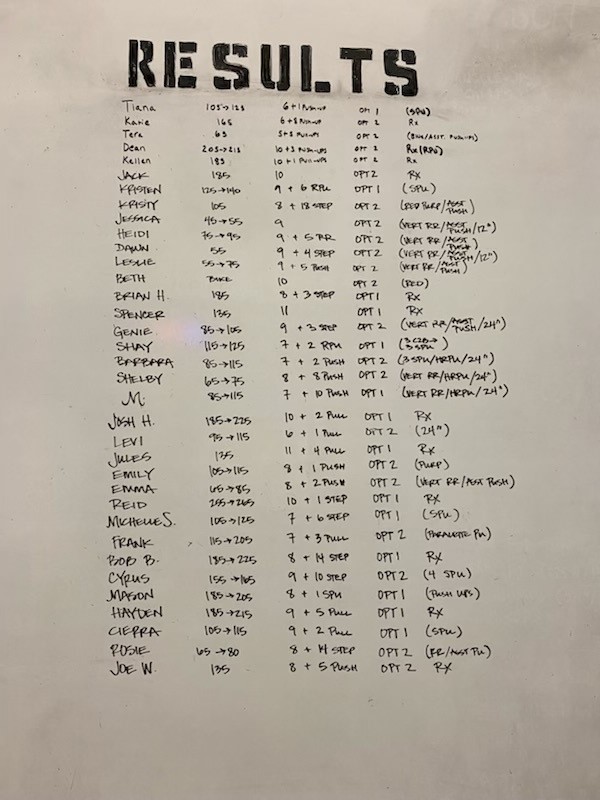 RESULTS
Tiana 105→125 6 + 1 PUSH-UP OPT 1 (SPU)
Katie 165 6 + 8 PUSH-UP OPT 2 Rx
Tera 65 OPT 2
Dean 205→215 OPT 2 Rx (RPU)
Kellen 185 10 + 1 PULL-UPS OPT 2 Rx
JACK 185 10 OPT 2 RX
KRISTEN 125→140 9 + 6 RPU OPT 1 (SPU)
KRISTY 105 8 + 18 STEP OPT 2 (RED PURP/ASST PUSH)
JESSICA 45→55 9 OPT 2 (VERT RR/ASST PUSH/12")
HEIDI 75→95 9 + 5 RR OPT 2 (VERT RR/ASST PUSH)
DAWN 55 9 + 4 STEP OPT 2 (VERT RR/ASST PUSH/12")
LESLIE 55→75 9 + 5 PUSH OPT 2 (VERT RR/ASST PUSH)
BETH BIKE 10 OPT 2 (RED)
BRIAN H. 185 8 + 3 STEP OPT 1 RX
SPENCER 135 11 OPT 1 RX
GENIE 85→105 9 + 3 STEP OPT 2 (VERT RR/ASST PUSH/24")
SHAY 115→125 7 + 2 RPU OPT 1 3 SPU)
BARBARA 85→115 7 + 2 PUSH OPT 2 (3 SPU/HRPU/24")
SHELBY 65→75 8 + 8 PUSH OPT 2 (VERT RR/HRPU/24")
M. 85→115 7 + 10 PUSH OPT 1 (VERT RR/HRPU/24")
JOSH H. 185→225 10 + 2 PULL OPT 1 RX
LEVI 95→115 6 + 1 PULL OPT 2 (24")
JULES 135 11 + 4 PULL OPT 1 RX
EMILY 105→115 8 + 1 PUSH OPT 2 (PURP)
EMMA 65→85 8 + 2 PUSH OPT 2 (VERT RR/ASST PUSH)
REID 255→265 10 + 1 STEP OPT 1 RX
MICHELLE S. 105→125 7 + 6 STEP OPT 1 (SPU)
FRANK 115→205 7 + 3 PULL OPT 2 (PARALETTE PU)
BOB B. 185→225 8 + 14 STEP OPT 1 RX
CYRUS 155→165 9 + 10 STEP OPT 2 (4 SPU)
MASON 185→205 8 + 1 SPU OPT 1 (PUSH UPS)
HAYDEN 185→215 9 + 5 PULL OPT 1 RX
CIERRA 105→115 9 + 2 PULL OPT 1 (SPU)
ROSIE 65→80 8 + 14 STEP OPT 2 (RR/ASST PU)
JOE W. 135 8 + 5 PUSH OPT 2 RX